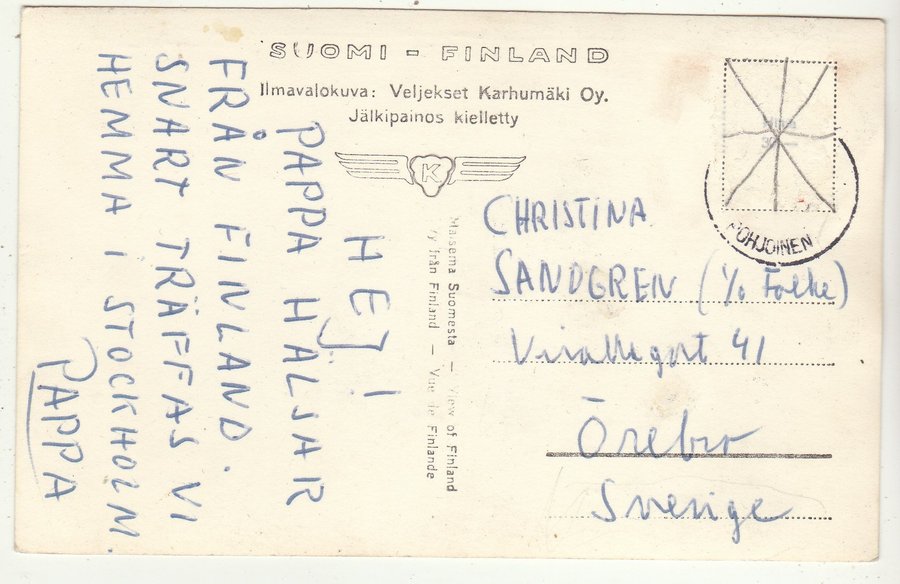 SUOMI - FINLAND
Ilmavalokuva: Veljekset Karhumäki Oy.
Jälkipainos kielletty
K
HEJ!
PAPPA HÄLSAR
FRÅN FINLAND.
SNART TRÄFFAS VI
HEMMA I STOCKHOLM.
PAPPA
Maisema Suomesta — View of Finland
Vy från Finland — Vue de Finlande
POHJOINEN
CHRISTINA
SANDGREN (c/o Folke)
41
Örebro
Sverige